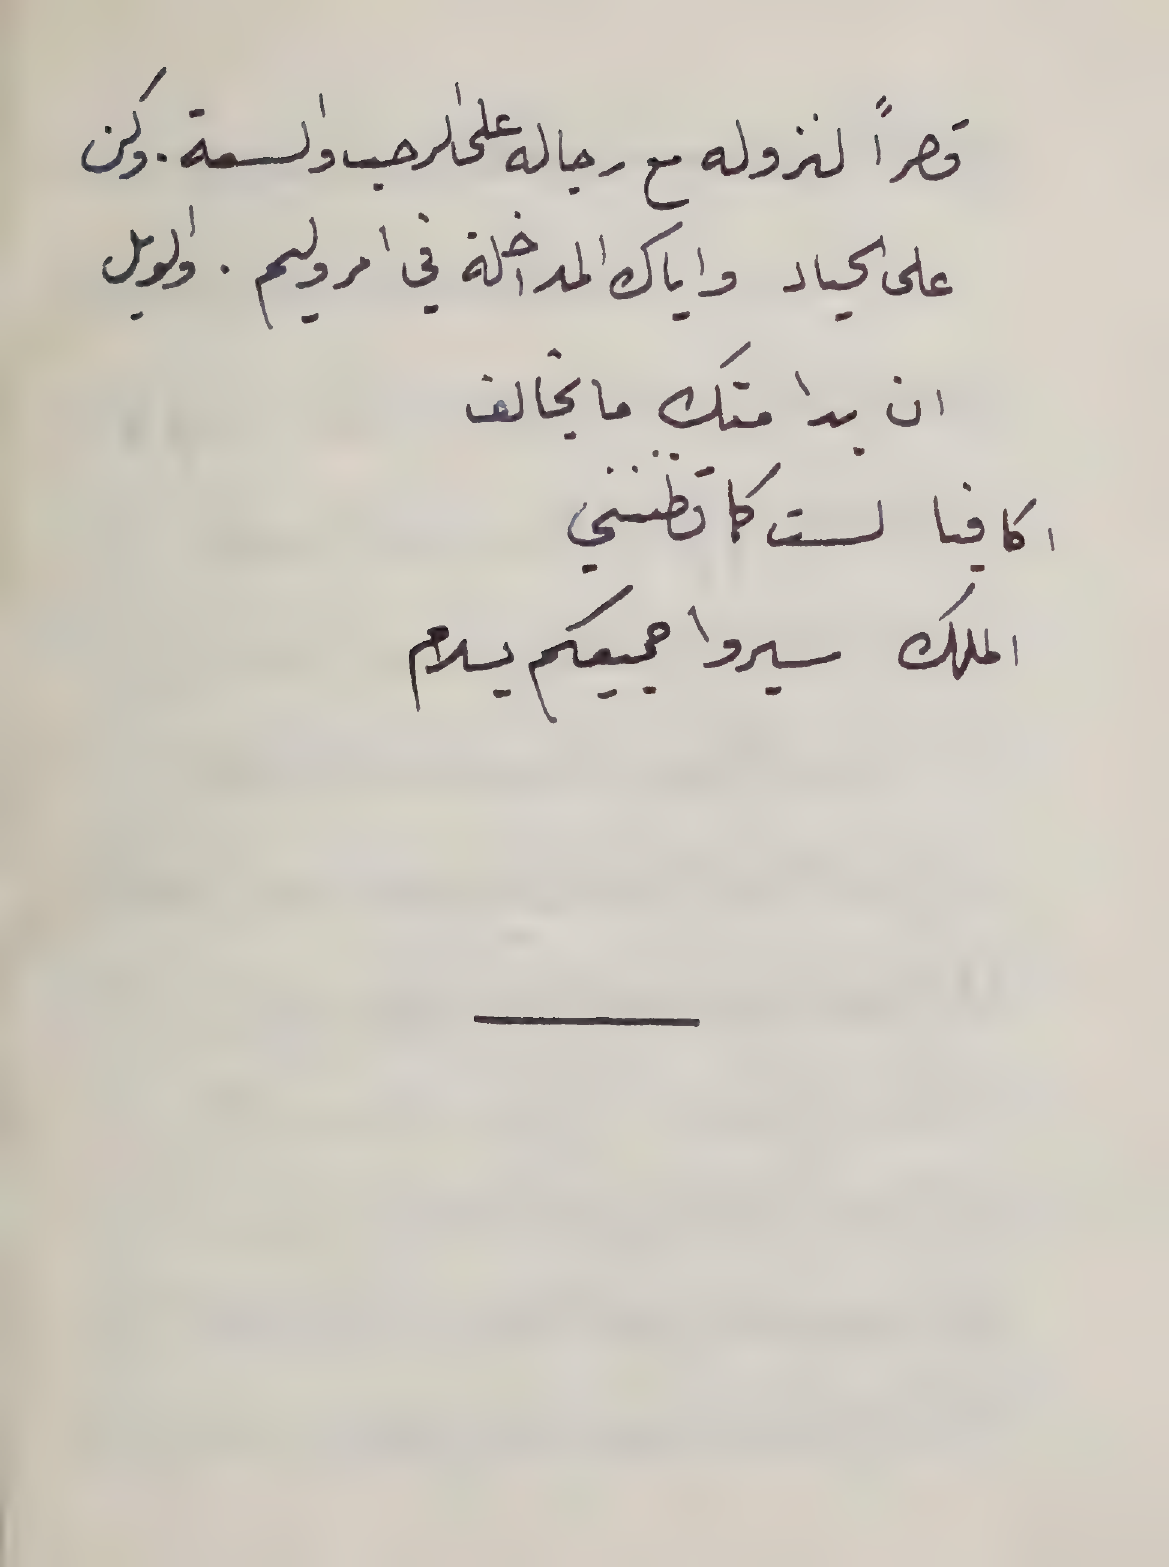 قصراً لنزوله مع رجاله على الرحب والسعة . وكن
على الحياد واياك المداخلة في امر وليم . والويل
ان بدا منك ما يخالف
اكافيا لست كما تظنني
الملك سيروا جميعكم بسلام